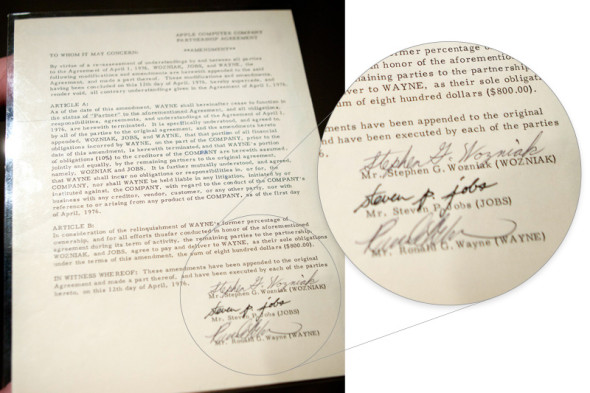 APPLE COMPUTER COMPANY
PARTNERSHIP AGREEMENT
TO WHOM IT MAY CONCERN:
**AMENDMENT**
By virtue of a re-assessment of understandings by and between all parties
to the Agreement of April 1, 1976, WOZNIAK, JOBS, and WAYNE, the
following modifications and amendments are herewith appended to the said
Agreement, and made a part thereof. These modifications and amendments,
having been concluded on this 12th day of April, 1976, hereby supercede, and
render void, all contrary understandings given in the Agreement of April 1, 1976.
ARTICLE A:
As of the date of this amendment, WAYNE shall hereinafter cease to function in
the status of "Partner" to the aforementioned Agreement, and all obligations,
responsibilities, agreements, and understandings of the Agreement of April 1,
1976, are herewith terminated. It is specifically understood, and agreed to,
by all of the parties to the original agreement, and the amendments hereto
appended, WOZNIAK, JOBS, and WAYNE, that that portion of all financial
obligations incurred by WAYNE, on the part of the COMPANY, prior to the
date of this amendment, is herewith terminated, and that WAYNE's portion
of obligations (10%) to the creditors of the COMPANY are herewith assumed,
jointly and equally, by the remaining partners to the original agreement,
namely, WOZNIAK and JOBS. It is further mutually understood, and agreed,
that WAYNE shall incur no obligations or responsibilities in, or for, the
COMPANY, nor shall WAYNE be held liable in any litigation, initiated by or
instituted against, the COMPANY, with regard to the conduct of the COMPANY's
business with any creditor, vendor, customer, or any other party, nor with
reference to or arising from any product of the COMPANY, as of the first day
of April, 1976.
ARTICLE B:
In consideration of the relinquishment of WAYNE's former percentage of
ownership, and for all efforts thusfar conducted in honor of the aforementioned
agreement during its term of activity, the remaining parties to the partnership,
WOZNIAK, and JOBS, agree to pay and deliver to WAYNE, as their sole obligations
under the terms of this amendment, the sum of eight hundred dollars ($800.00).
IN WITNESS WHEREOF: These amendments have been appended to the original
Agreement and made a part thereof, and have been executed by each of the parties
hereto, on this 12th day of April, 1976.
Stephen G. Wozniak
Mr. Stephen G. Wozniak (WOZNIAK)
steven p. jobs
Mr. Steven P. Jobs (JOBS)
Mr. Ronald G. Wayne (WAYNE)
rmer percentage o
n honor of the aforementione
aining parties to the partnership
ver to WAYNE, as their sole obligat
um of eight hundred dollars ($800.00).
ments have been appended to the original
nd have been executed by each of the parties
6.
Stephen G. Wozniak
Mr. Stephen G. Wozniak (WOZNIAK)
steven p. jobs
Mr. Steven P. Jobs (JOBS)
Mr. Ronald G. Wayne (WAYNE)